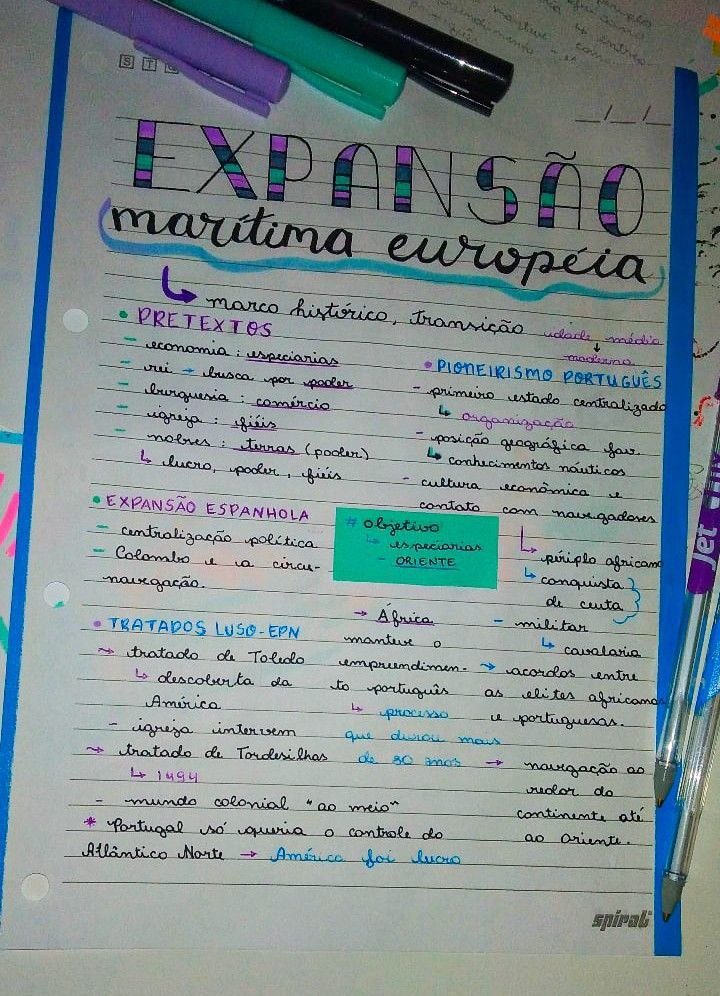 S T Q
EXPANSÃO
marítima européia
↳ marco histórico, transição idade média
↓
moderna
• PRETEXTOS
- economia : especiarias
- rei → busca por poder
- burguesia : comércio
- igreja : fiéis
- nobres : terras (poder)
↳ lucro, poder, fiéis
• PIONEIRISMO PORTUGUÊS
- primeiro estado centralizado
↳ organização
- posição geográfica fav.
↳ conhecimentos náuticos
- cultura econômica e
contato com navegadores
↳ périplo africano
↳ conquista
de ceuta
- militar
↳ cavalaria
→ acordos entre
as elites africanas
e portuguesas.
→ navegação ao
redor do
continente até
ao oriente.
• EXPANSÃO ESPANHOLA
- centralização política
- Colombo e a circu-
navegação.
# objetivo
↳ especiarias
- ORIENTE
→ África
manteve o
empreendimen-
to português
↳ processo
que durou mais
de 80 anos
• TRATADOS LUSO-EPN
~> tratado de Toledo
↳ descoberta da
América
- igreja intervem
~> tratado de Tordesilhas
↳ 1494
- mundo colonial "ao meio"
* Portugal só queria o controle do
Atlântico Norte → América foi lucro
spiral
Jet